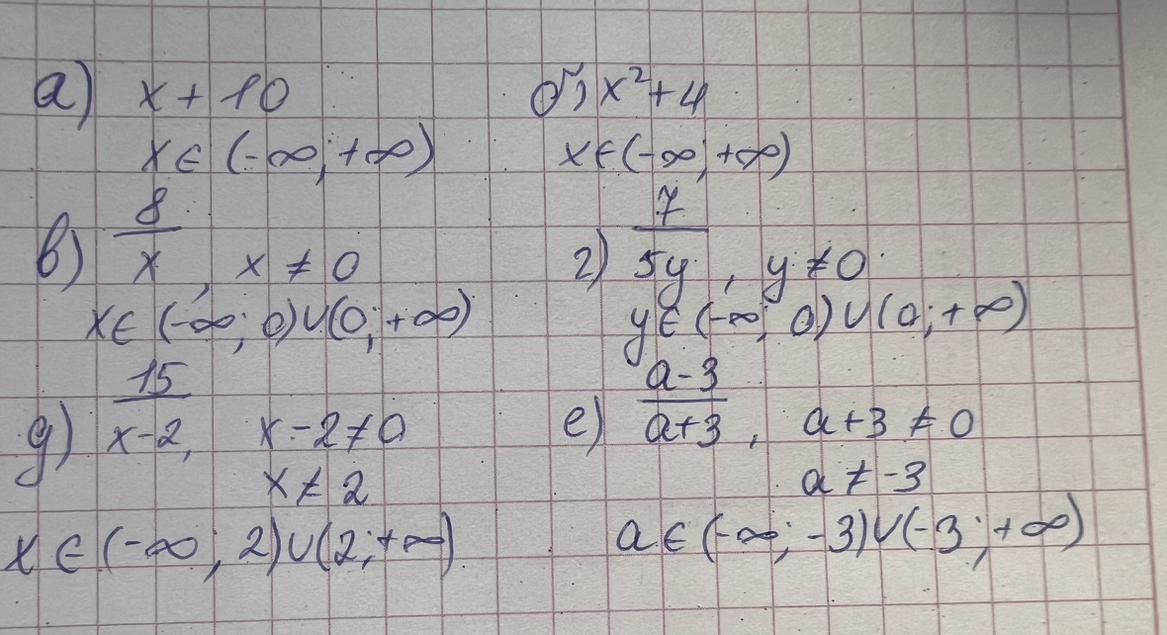 а) x + 10
x ∈ (-∞; +∞)
б) x² + 4
x ∈ (-∞; +∞)
в) 8/x, x ≠ 0
x ∈ (-∞; 0)∪(0; +∞)
г) 7/5y, y ≠ 0
y ∈ (-∞; 0)∪(0; +∞)
д) 15/x-2, x - 2 ≠ 0
x ≠ 2
x ∈ (-∞; 2)∪(2; +∞)
е) a-3/a+3, a + 3 ≠ 0
a ≠ -3
a ∈ (-∞; -3)∪(-3; +∞)